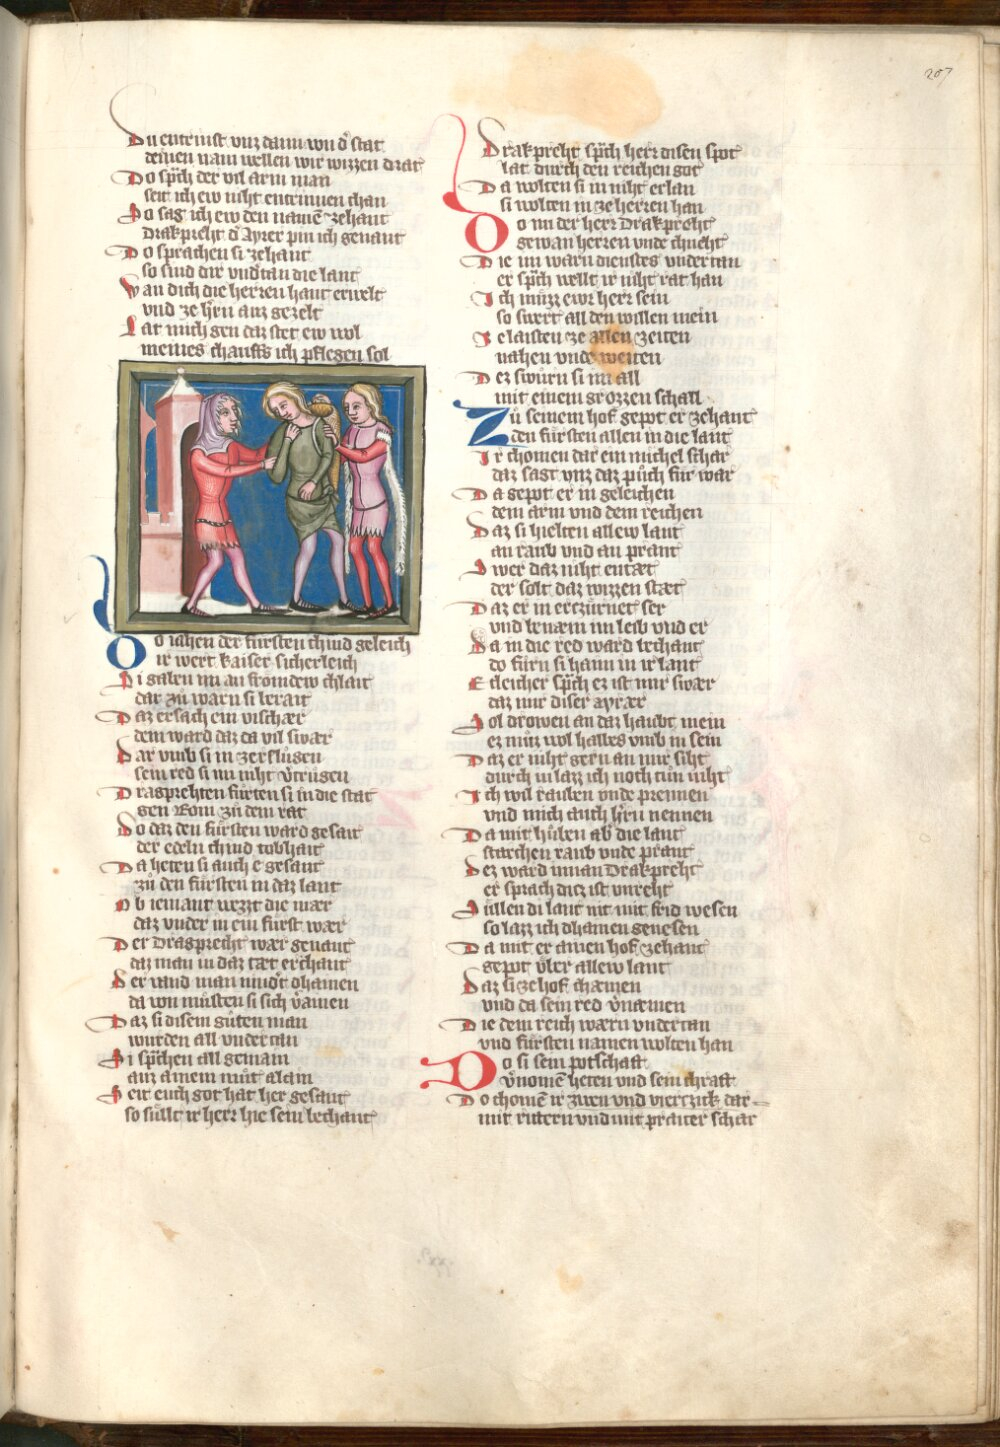 207
Du entrinst vnz dann von d stat
deinen nam wellen wir wizzen drat
Do sp̃ch der vil arm man
seit ich ew niht entrinnen chan
So sag ich ew den namē zehant
Drakpreht d Ayrer pin ich genant
Do sprachen si zehant
so sind dir vndtan die lant
Wan dich die herren hant erwelt
vnd ze h̃rn auz gezelt
Lat mich gen daz stet ew wol
meines chauffs ich pflegen sol
Do iahen der fursten chind geleich
ir wert kaiser sicherleich
Si gaben im an fromdew chlait
dar zů warn si berait
Daz ersach ein vischær
dem ward daz da vil swær
Dar vmb si in zersluͦgen
sein red si im niht v̾truͦgen
Dragprehten fuͦrten si in die stat
gen Rom zů dem rat
Do daz den fuͤrsten ward gesait
der edeln chind tobhait
Da heten si auch e gesant
zů den fuͤrsten in daz lant
Ob iemant wezzt die mær
daz vnder in ein fuͤrst wær
Der Dragprecht wær genant
daz man in daz tæt erchant
Der vand man nindt dhainen
da von můsten si sich v̾ainen
Daz si disem gůten man
wurden all vndertan
Si sp̃chen all gemain
auz ainem můt alain
Seit euch got hat her gesant
so sullt ir herr hie sein bechant
Drakpreht sp̃ch herr disen spot
lat durch den reichen got
Da wolten si in niht erlan
si wolten in ze herren han
Do nu der herr Drakpreht
gewan herren vnde chneht
Die im warn dienstes vndertan
er sp̃ch wellt ir niht rat han
Ich muͤzz ewr herr sein
so swert all den willen mein
Zelaisten ze allen zeiten
nahen vnde weiten
Dez swůrn si im all
mit einem grozzen schall
Zů seinem hof gepot er zehant
den fuͤrsten allen in die lant
Ir chomen dar ein michel schar
daz sagt vnz daz půch fuͤr war
Da gepot er in geleichen
dem arm vnd dem reichen
Daz si hielten allew lant
an raub vnd an prant
Swer daz niht entæt
der solt daz wizzen stæt
Daz er in erczůrnet ser
vnd benæm im leib vnd er
Da in die red ward bechant
do fůrn si haim in ir lant
Etleicher sp̃ch ez ist mir swær
daz mir diser ayrær
Sol drowen an daz haubt mein
ez můz wol halbes vmb in sein
Daz er niht gern an mir siht
durch in lazz ich noch tůn niht
Ich wil rauben vnde prennen
vnd mich auch h̃rn nennen
Da mit hůben ab die lant
starchen raub vnde prant
Dez ward innan Drakpreht
er sprach dicz ist vnreht
Suͤllen di lant nit mit frid wesen
so lazz ich dhainen genesen
Da mit er ainen hof zehant
gepot vͤber allew lant
Daz si ze hof chæmen
vnd da sein red v̾næmen
Die dem reich wærn vndertan
vnd fuͤrsten namen wolten han
Do si sein potschaft
v̾nomē heten vnd sein chraft
Do chomē ir zwen vnd vierczick dar
mit rittern vnd mit praiter schar